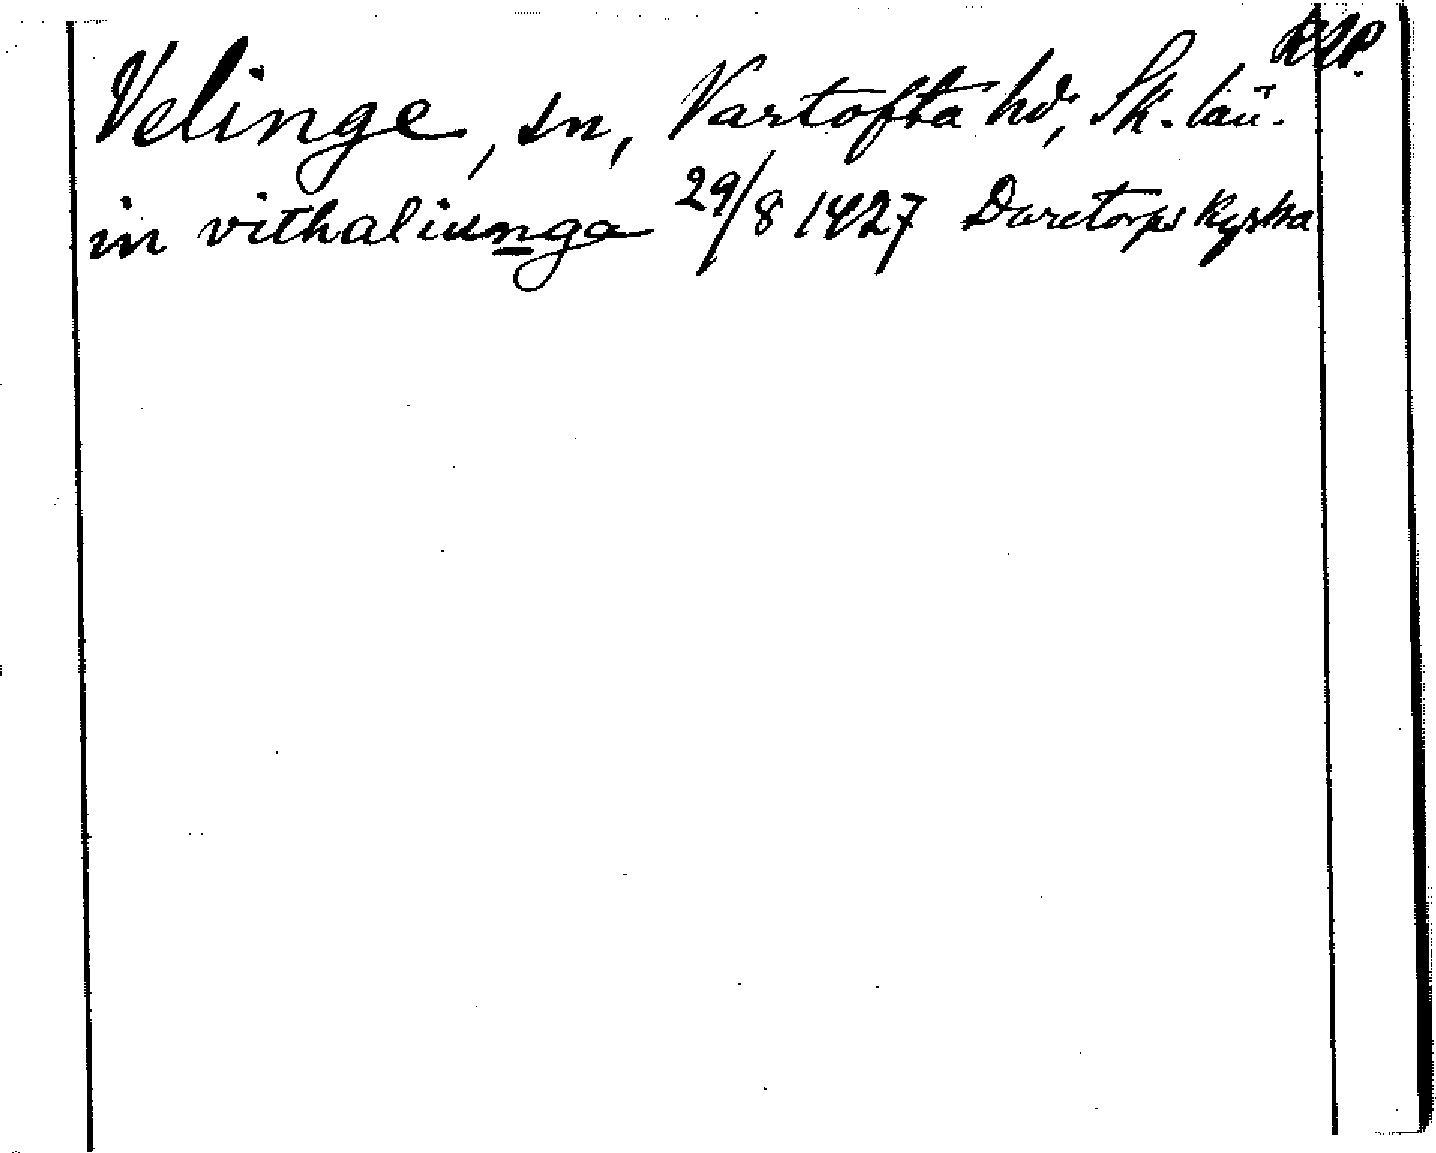 Velinge, sn, Vartofta hd, Sk. län.
in vithaliunga 29/8 1427 Daretorps kyrka